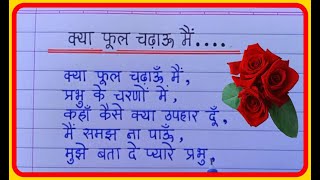 क्या फूल चढ़ाऊ मैं....
क्या फूल चढ़ाऊँ मैं,
प्रभु के चरणों में,
कहाँ कैसे क्या उपहार दूँ,
मैं समझ ना पाऊँ,
मुझे बता दे प्यारे प्रभु,